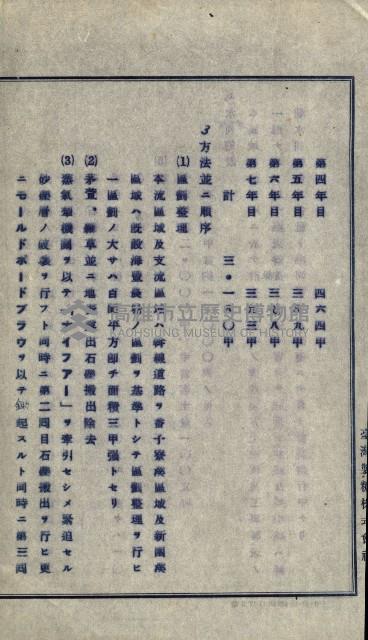 第四年目　四六四甲
第五年目　三五九甲
第六年目　三七八甲
第七年目　三五三甲
計　三・一五〇甲
3 方法並ニ順序
(1) 區劃整理
本流區域及支流區域ハ幹線道路ヲ番子寮溪區域及新園溪
區域ハ既設海豐農場ノ區劃ヲ基準トシテ區劃整理ヲ行ヒ
一區劃ノ大サハ百間平方即チ面積三甲强トセリ
(2) 茅萱、雜草並ニ地表突出石礫搬出除去
(3) 蒸氣犂機關ヲ以テ「ナイフアー」ヲ牽引セシメ緊迫セル
砂礫層ノ破裂ヲ行フト同時ニ第二回目石礫搬出ヲ行ヒ更
ニモールドボードプラウヲ以テ起スルト同時ニ第三回
臺灣製糖株式會社
高雄市立歷史博物館
KAOHSIUNG MUSEUM OF HISTORY